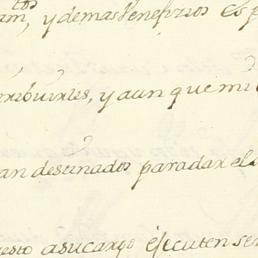 am.tos, y demas Veneficios Es p
tribuirles, y aun que mi
an destinados para dar el
esto a su cargo éjecuten se